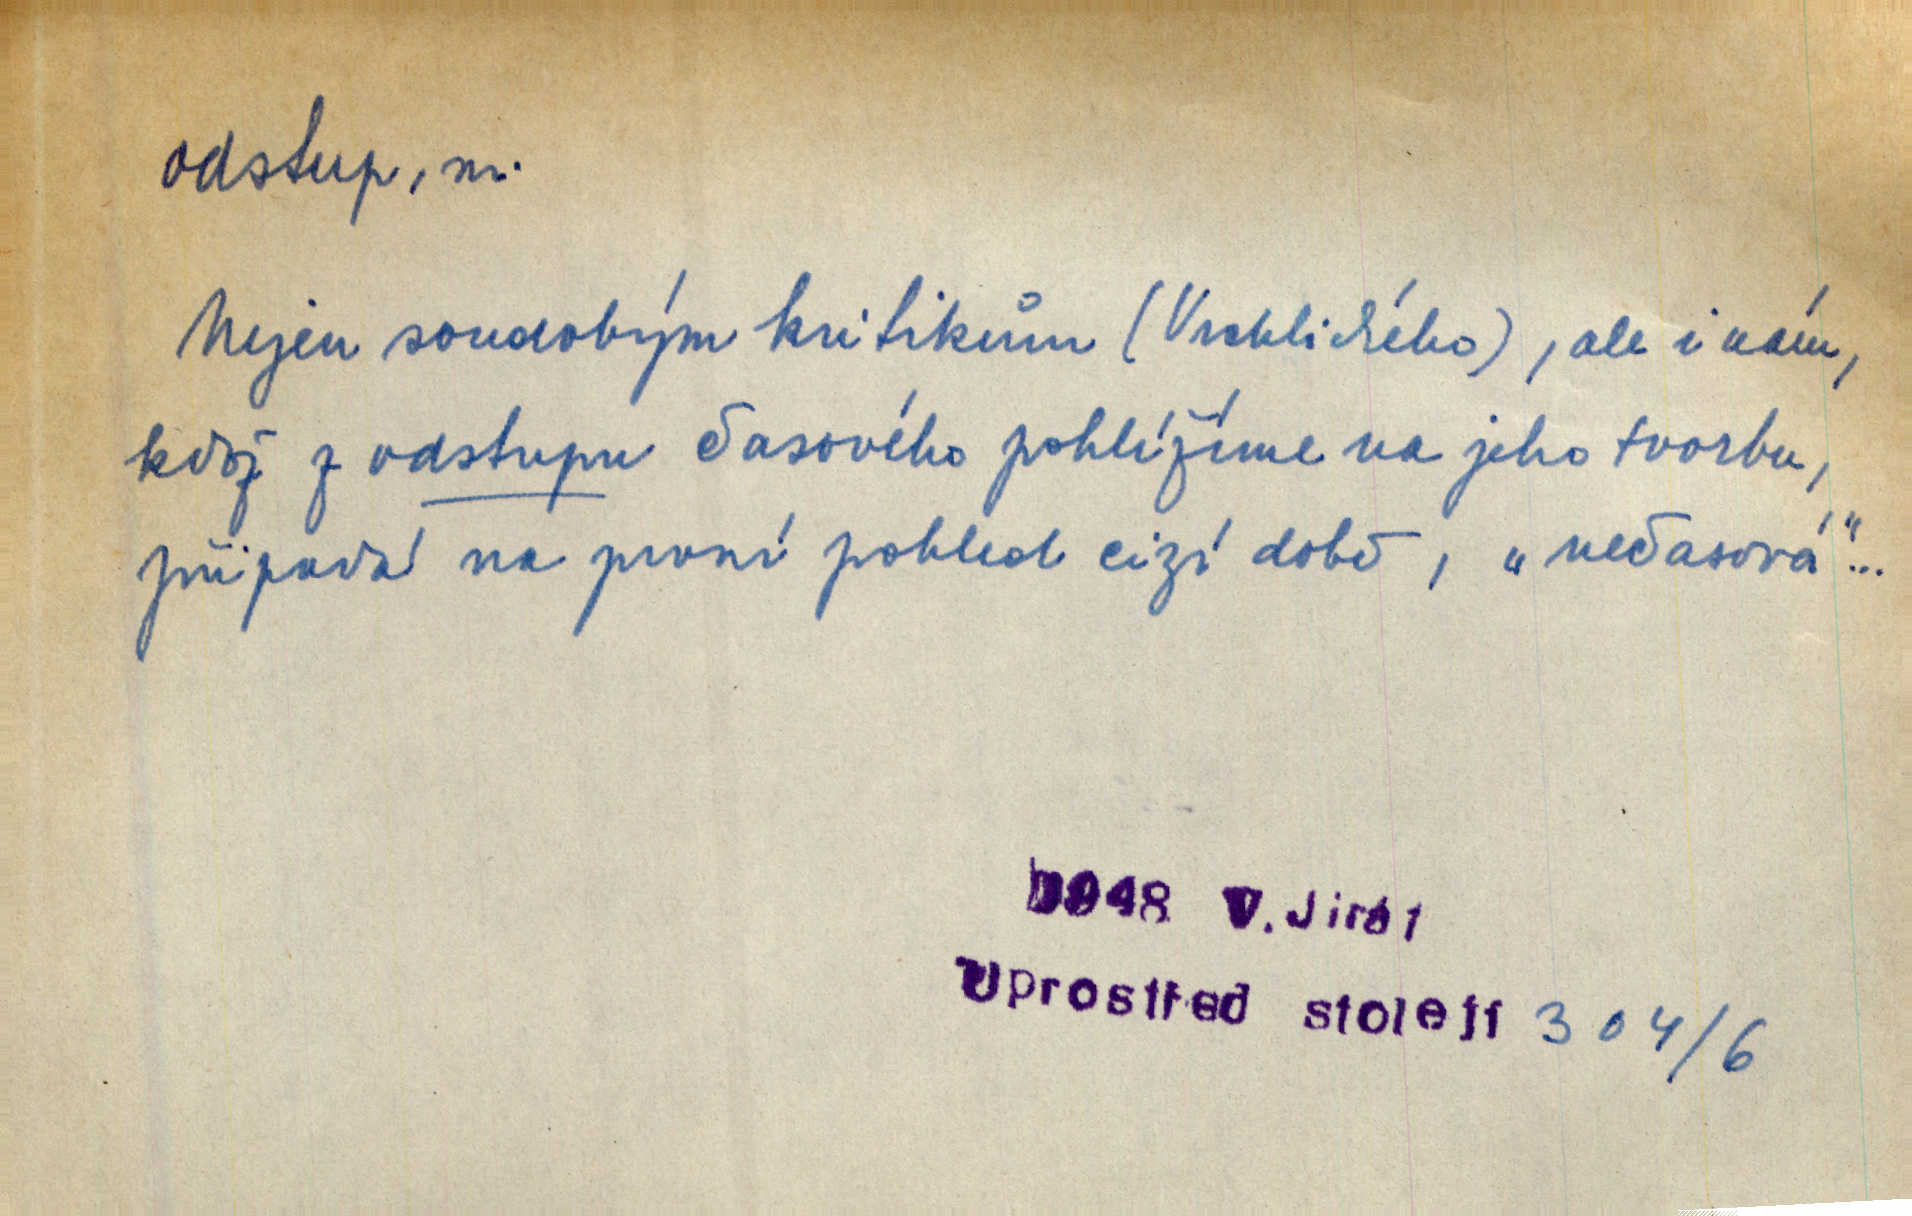 odstup, m.
Nejen soudobým kritikům (Vrchlického), ale i nám,
když z odstupu časového pohlížíme na jeho tvorbu,
připadá na první pohled cizí době, „nečasová"...
1948 V. Jirát
Uprostřed století 304/6